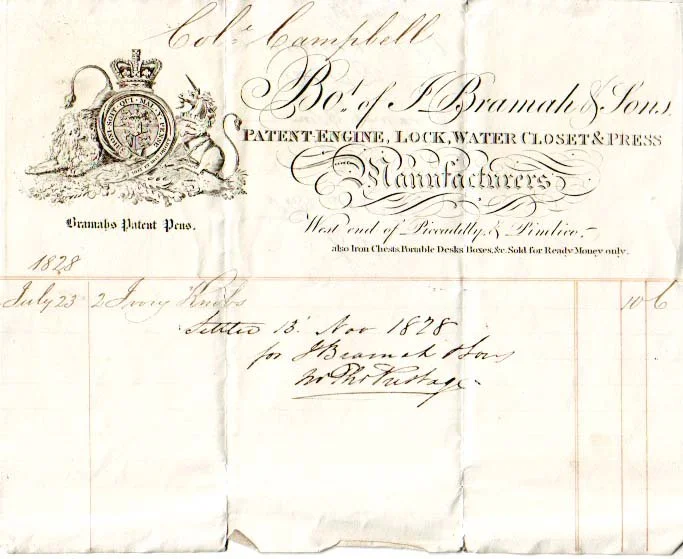 Col.e Campbell
Bo.t of J. Bramah & Sons,
PATENT-ENGINE, LOCK, WATER CLOSET & PRESS
Manufacturers
HONI SOIT QUI MAL Y PENSE
Bramahs Patent Pens.
West end of Piccadilly, & Pimlico,
also Iron Chests, Portable Desks Boxes, &c. Sold for Ready Money only.
1828
July 23 2 Ivory Knobs 10 6
Settled 13 Nov 1828
for J Bramah & Sons